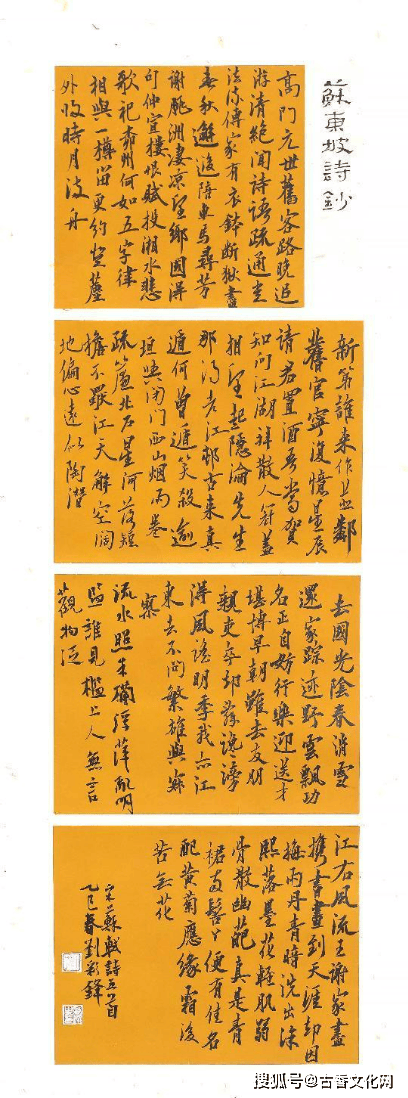 蘇東坡詩鈔
高門元世舊客路晚追
游清絕聞詩語疏通豈
法流傳家有衣鉢斷獄盡
春秋邂逅陪車馬尋芳
謝朓洲淒涼望鄉國得
句仲宣樓恨賦投湘水悲
歌祀柳州何如五字律
相與一樽留更約登塵
外 時月 舟
新第誰來作並鄰
舊官寧復憶星辰
請君置酒吾當賀
知向江湖拜散人冠蓋
相望起隱淪先生
那得老江邨古來真
遁何曾遁笑殺逾
垣與閉門西山烟雨卷
疏簾北戶星河落短
檐不羨江天解空闊
地偏心遠似陶潛
去國光陰春消雪
還家踪迹野雲飄功
名正自妨行樂迎送才
堪博早朝雖去友朋
親吏卒却辭讒謗
得風謠明季我亦江
東去不問繁雄與寂
寥
流水照朱欄浮萍亂明
鑒誰見檻上人無言
觀物泛
江右風流王謝家盡
攜書畫到天涯却因
梅雨丹青暗洗出徐
熙落墨花輕肌弱
骨散幽葩真是青
裙兩髻丫便有佳名
配黃菊應緣霜後
苦無花
宋蘇軾詩五首
乙巳春劉彩鋒
搜狐号@古香文化网